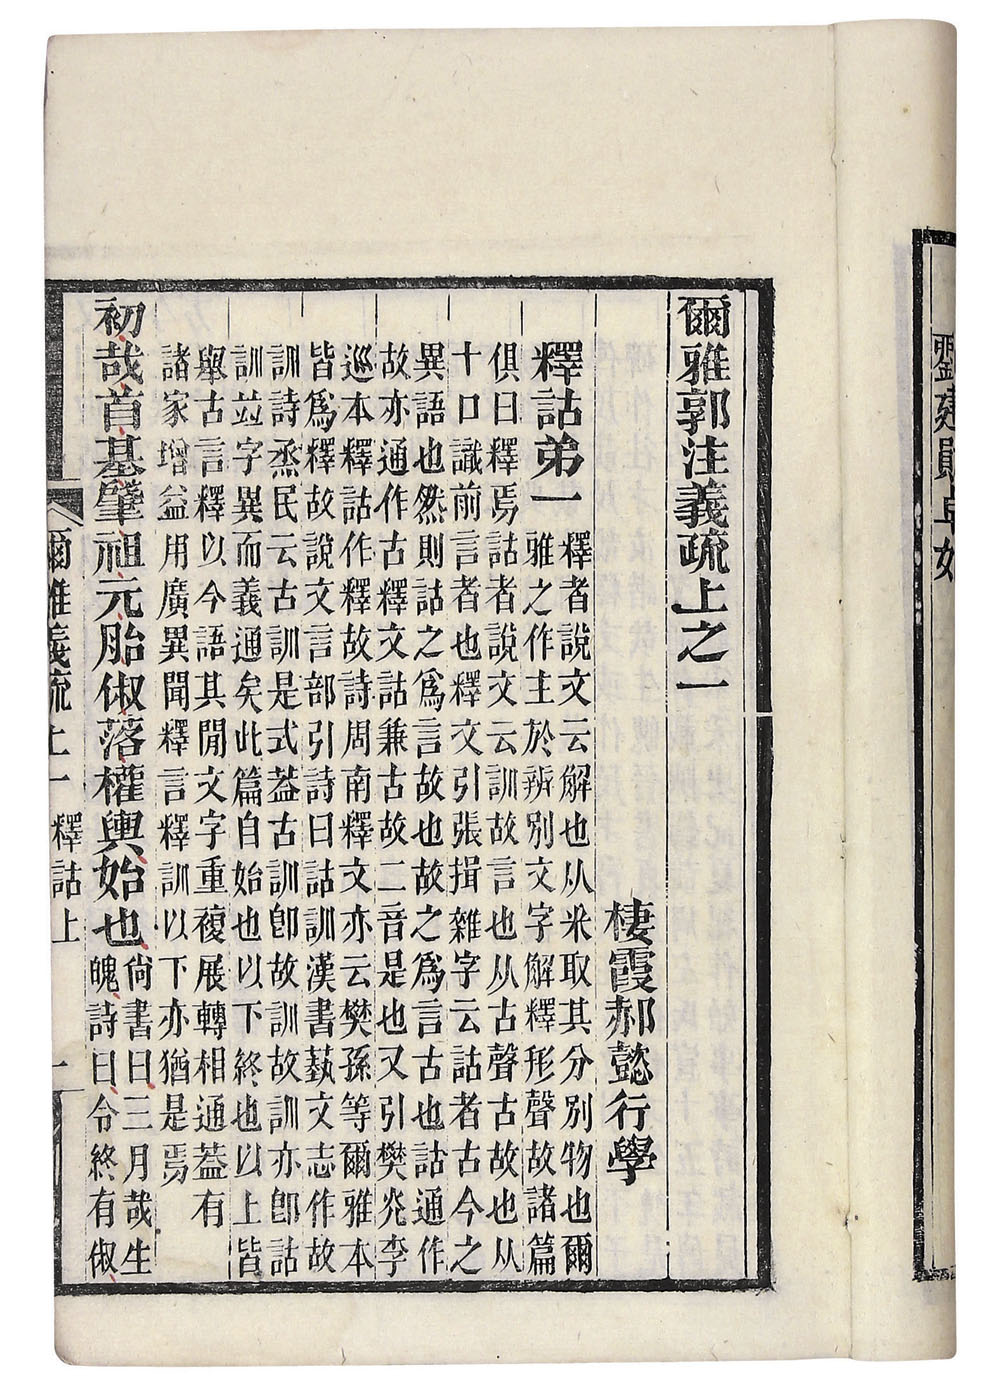 爾雅郭注義疏上之一
棲霞郝懿行學
釋詁弟一
釋者說文云解也从釆取其分別物也爾
雅之作主於辨別文字解釋形聲故諸篇
俱曰釋焉詁者說文云訓故言也从古聲古故也从
十口識前言者也釋文引張揖雜字云詁者古今之
異語也然則詁之爲言故也故之爲言古也詁通作
故亦通作古釋文詁兼古故二音是也又引樊光李
巡本釋詁作釋故詩周南釋文亦云樊孫等爾雅本
皆爲釋故說文言部引詩曰詁訓漢書蓺文志作故
訓詩烝民云古訓是式葢古訓卽故訓故訓亦卽詁
訓竝字異而義通矣此篇自始也以下終也以上皆
舉古言釋以今語其閒文字重複展轉相通葢有
諸家增益用廣異聞釋言釋訓以下亦猶是焉
初哉首基肈祖元胎俶落權輿始也
尙書曰三月哉生
魄詩曰令終有俶
爾雅義疏上一 釋詁上 一